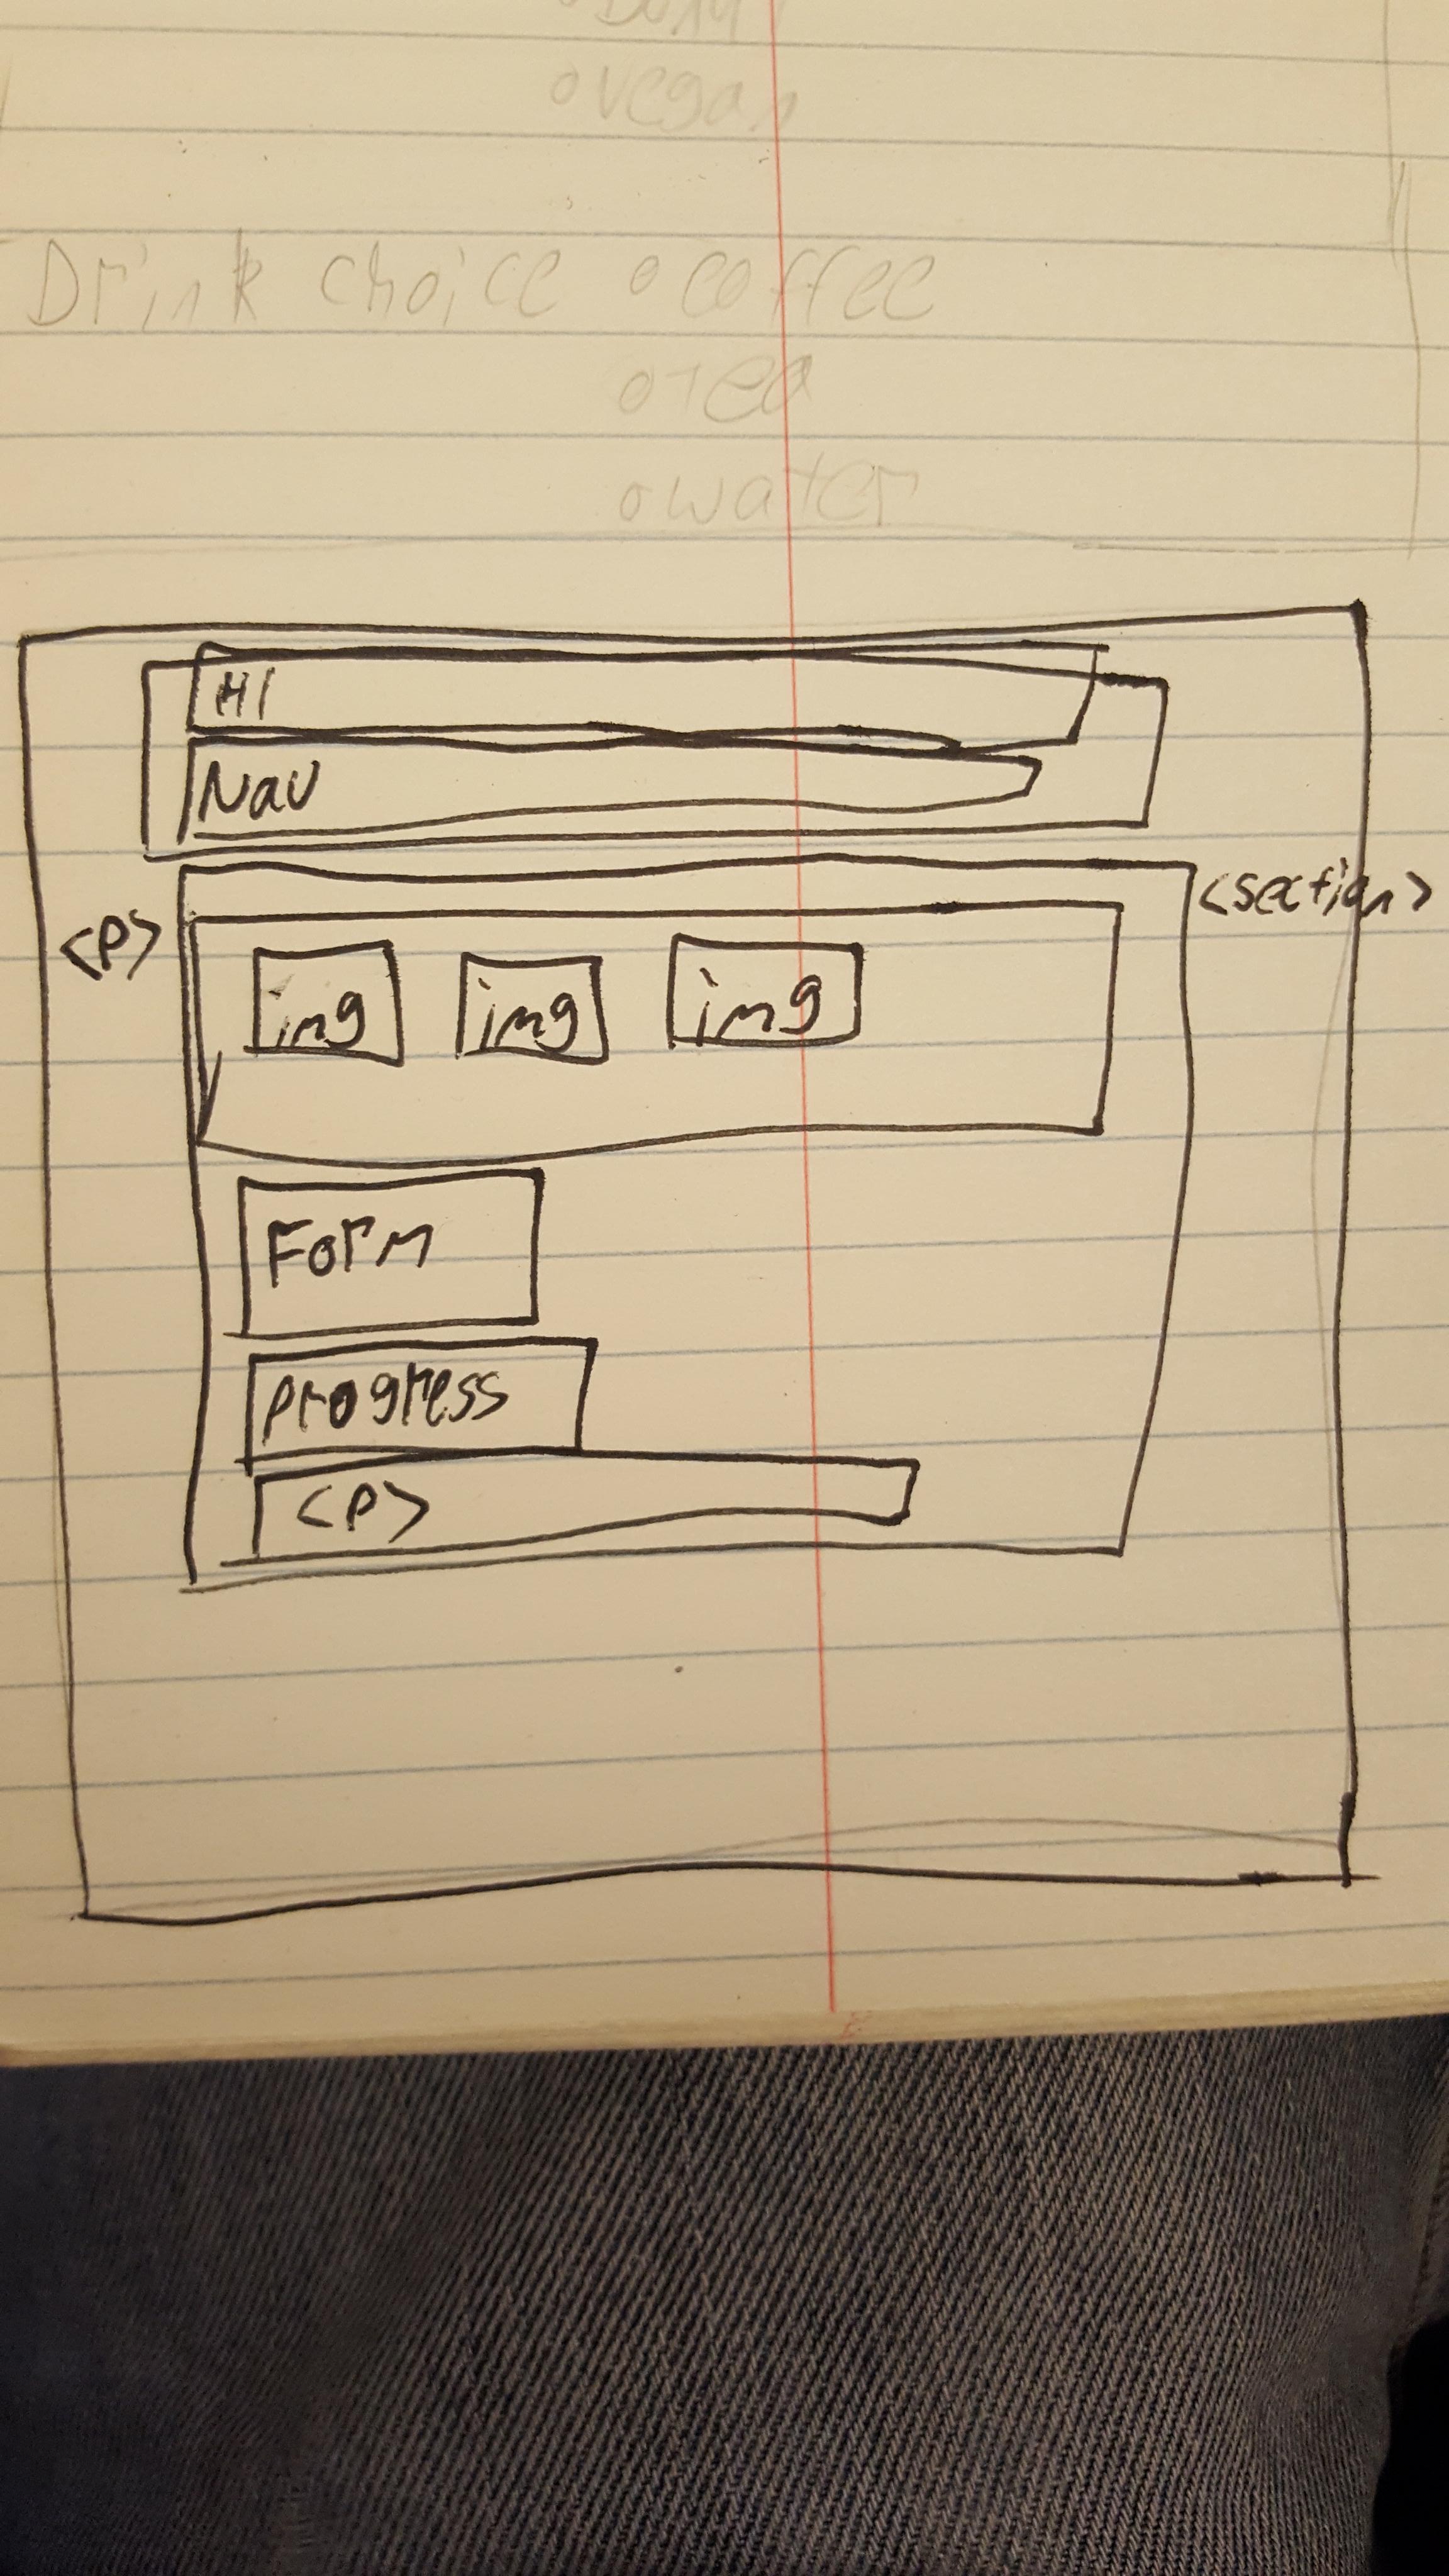 o vegan
Drink choice o coffee
o Tea
o water
H1
Nav
<section>
<P>
img img img
Form
progress
<P>